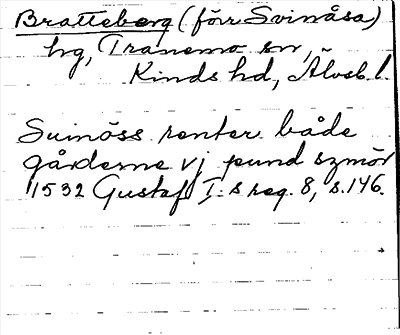 Bratteberg (förr Svinåsa)
hg, Tranemo sn,
Kinds hd, Älvsb. l.
Suinåss renter både
gårderne vj pund szmör
1532 Gustaf I:s reg. 8, s. 146.